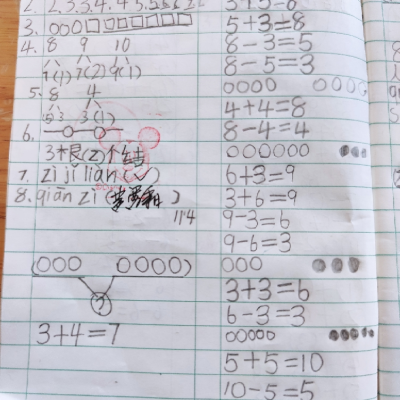 2. 2.3.3.4.4.5.5.
3.
4. 8 9 10
7(1) 7(2) 9(1)
5. 8 4
(5)3 3(1)
6.
3根(2)个结
7. zì jǐ liàn
8. qiān zì ( )
11.4
3+4=7
5+3=8
8-3=5
8-5=3
4+4=8
8-4=4
6+3=9
3+6=9
9-3=6
9-6=3
3+3=6
6-3=3
5+5=10
10-5=5